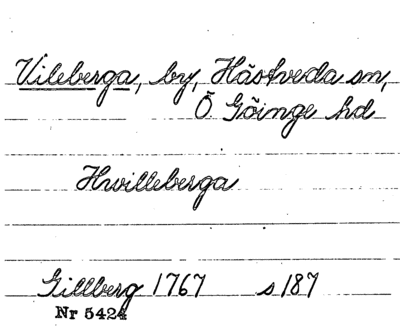 Vileberga, by, Hästveda sn,
Ö Göinge hd
Hwilleberga
Gillberg 1767 s 187
Nr 5424